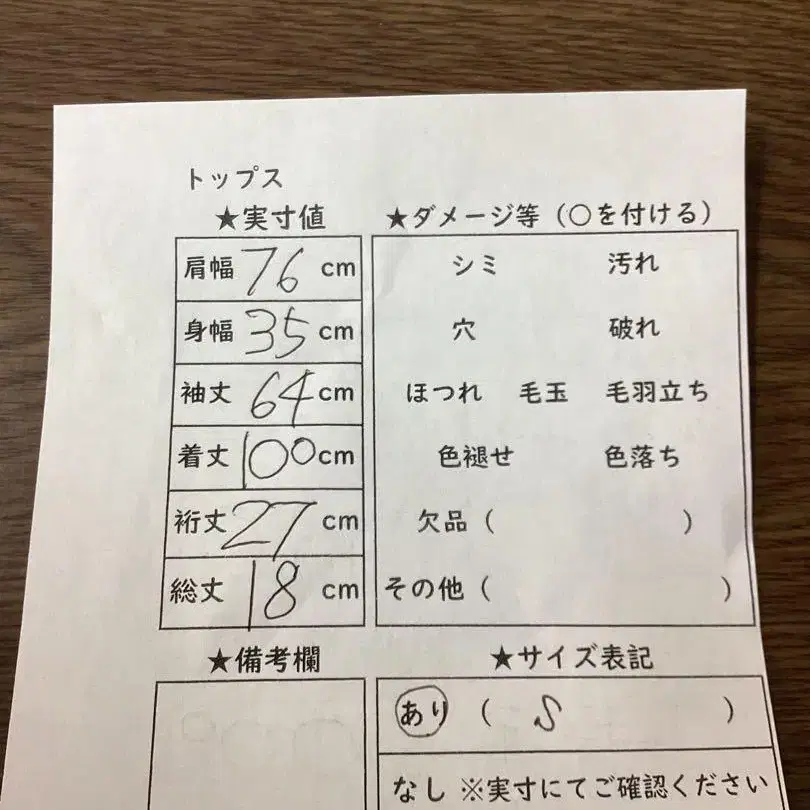 トップス
★実寸値
肩幅 76 cm
身幅 35 cm
袖丈 64 cm
着丈 100 cm
裄丈 27 cm
総丈 18 cm
★ダメージ等（○を付ける）
シミ 汚れ
穴 破れ
ほつれ 毛玉 毛羽立ち
色褪せ 色落ち
欠品（ ）
その他（ ）
★備考欄
★サイズ表記
あり（ S ）
なし ※実寸にてご確認ください